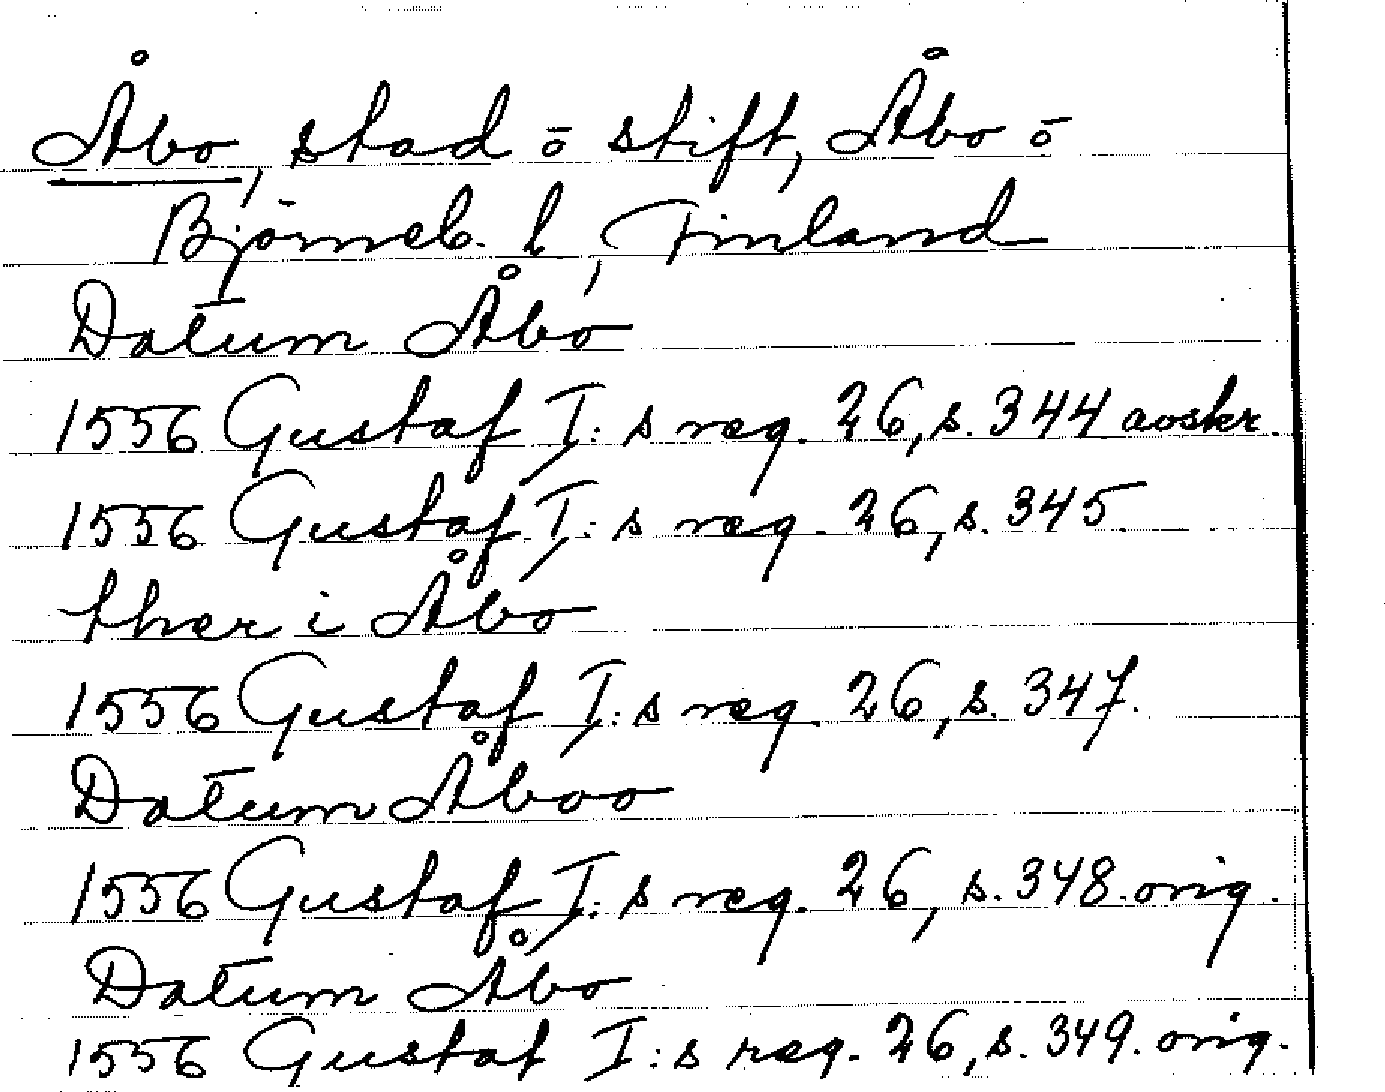 Åbo, stad ō stift, Åbo ō
Björneb. l, Finland
Datum Åbo
1556 Gustaf I:s reg. 26, s. 344 avskr.
1556 Gustaf I:s reg. 26, s. 345
ther i Åbo
1556 Gustaf I:s reg. 26, s. 347.
Datum Åboo
1556 Gustaf I:s reg. 26, s. 348. orig.
Datum Åbo
1556 Gustaf I:s reg. 26, s. 349. orig.